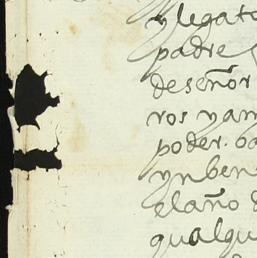 y legato
padre
de señor
ros y am
poder. o
y n ben
el año d
qualqu